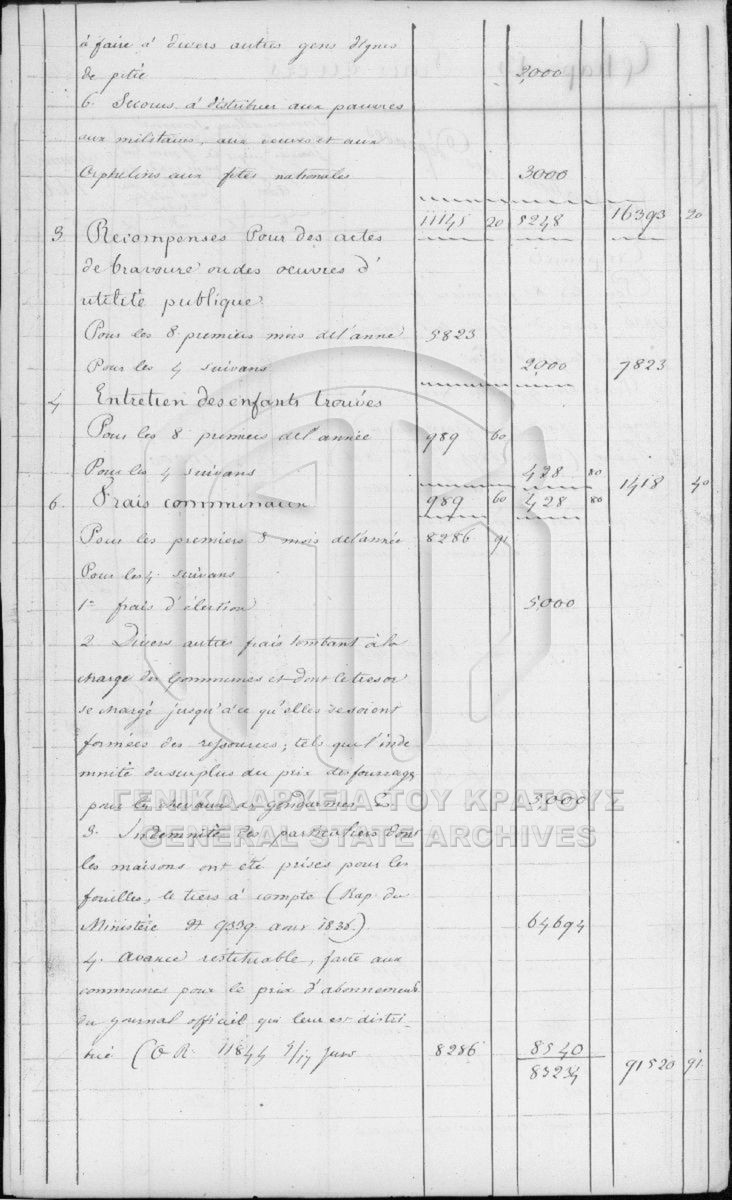 à faire à divers autres gens dignes
de pitié 2,000
6. Secours à distribuer aux pauvres
aux militaires, aux veuves et aux
Orphelins aux fêtes nationales 3000
11145 20 5248 16393 20
3 Récompenses Pour des actes
de bravoure ou des oeuvres d'
utilité publique
Pour les 8 premiers mois de l'anné 5823
Pour les 4 suivans 2000 7823
4 Entretien des enfants trouvés
Pour les 8 premiers de l'année 989 60
Pour les 4 suivans 428 80 1418 40
6. Frais communaux 989 60 428 80
Pour les premiers 8 mois de l'année 8286 91
Pour les 4 suivans
1º frais d'élection 5,000
2 Divers autres frais tombant à la
charge des Communes et dont le tresor
se chargé jusqu'à ce qu'elles se soient
formées des ressources; tels que l'inde
mnité du surplus du prix des fourrages
pour les chevaux de gendarmes 5000
ΓΕΝΙΚΑ ΑΡΧΕΙΑ ΤΟΥ ΚΡΑΤΟΥΣ
GENERAL STATE ARCHIVES
3. Indemnité des particuliers dont
les maisons ont été prises pour les
fouilles, le tiers à compte (Rap. du
Ministère 9339 1836.) 64694
4. avance restituable, faite aux
communes pour le prix d'abonnement
du journal officiel qui leur est distri-
bué (O R. 11844 5/17 8286 8540
83234 91520 91